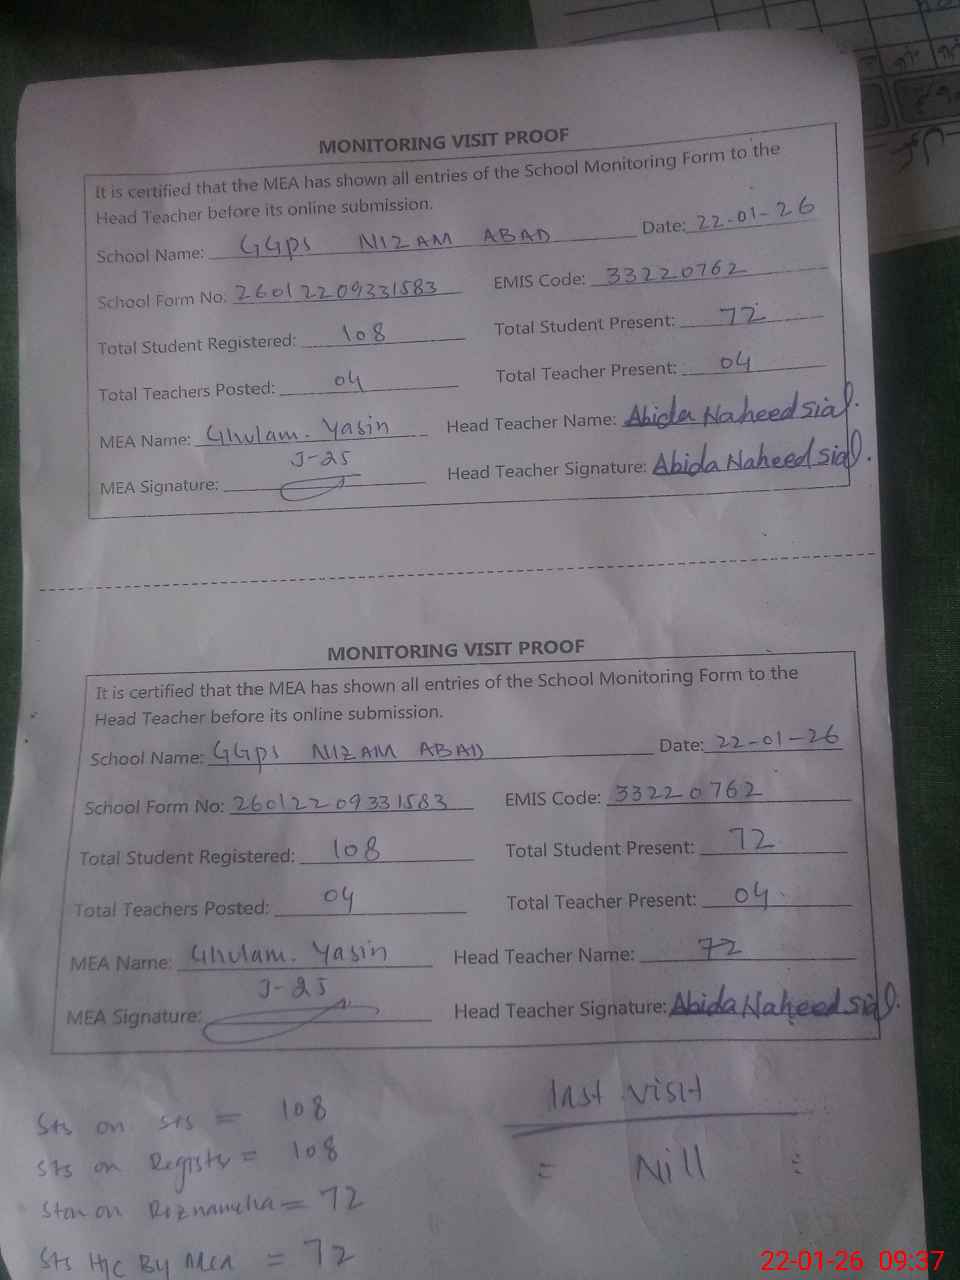 MONITORING VISIT PROOF
It is certified that the MEA has shown all entries of the School Monitoring Form to the
Head Teacher before its online submission.
School Name: GGPS NIZAM ABAD Date: 22-01-26
School Form No: 26012209331583 EMIS Code: 33220762
Total Student Registered: 108 Total Student Present: 72
Total Teachers Posted: 04 Total Teacher Present: 04
MEA Name: Ghulam. Yasin Head Teacher Name: Abida Naheed sial.
J-25
MEA Signature: Head Teacher Signature: Abida Naheed sial.
MONITORING VISIT PROOF
It is certified that the MEA has shown all entries of the School Monitoring Form to the
Head Teacher before its online submission.
School Name: GGPS NIZAM ABAD Date: 22-01-26
School Form No: 26012209331583 EMIS Code: 33220762
Total Student Registered: 108 Total Student Present: 72
Total Teachers Posted: 04 Total Teacher Present: 04
MEA Name: Ghulam. Yasin Head Teacher Name: 72
J-25
MEA Signature: Head Teacher Signature: Abida Naheed sial.
last visit
= Nill
Sts on sts = 108
Sts on Registr = 108
on Roznamcha = 72
Sts H/C By Mea = 72
22-01-26 09:37